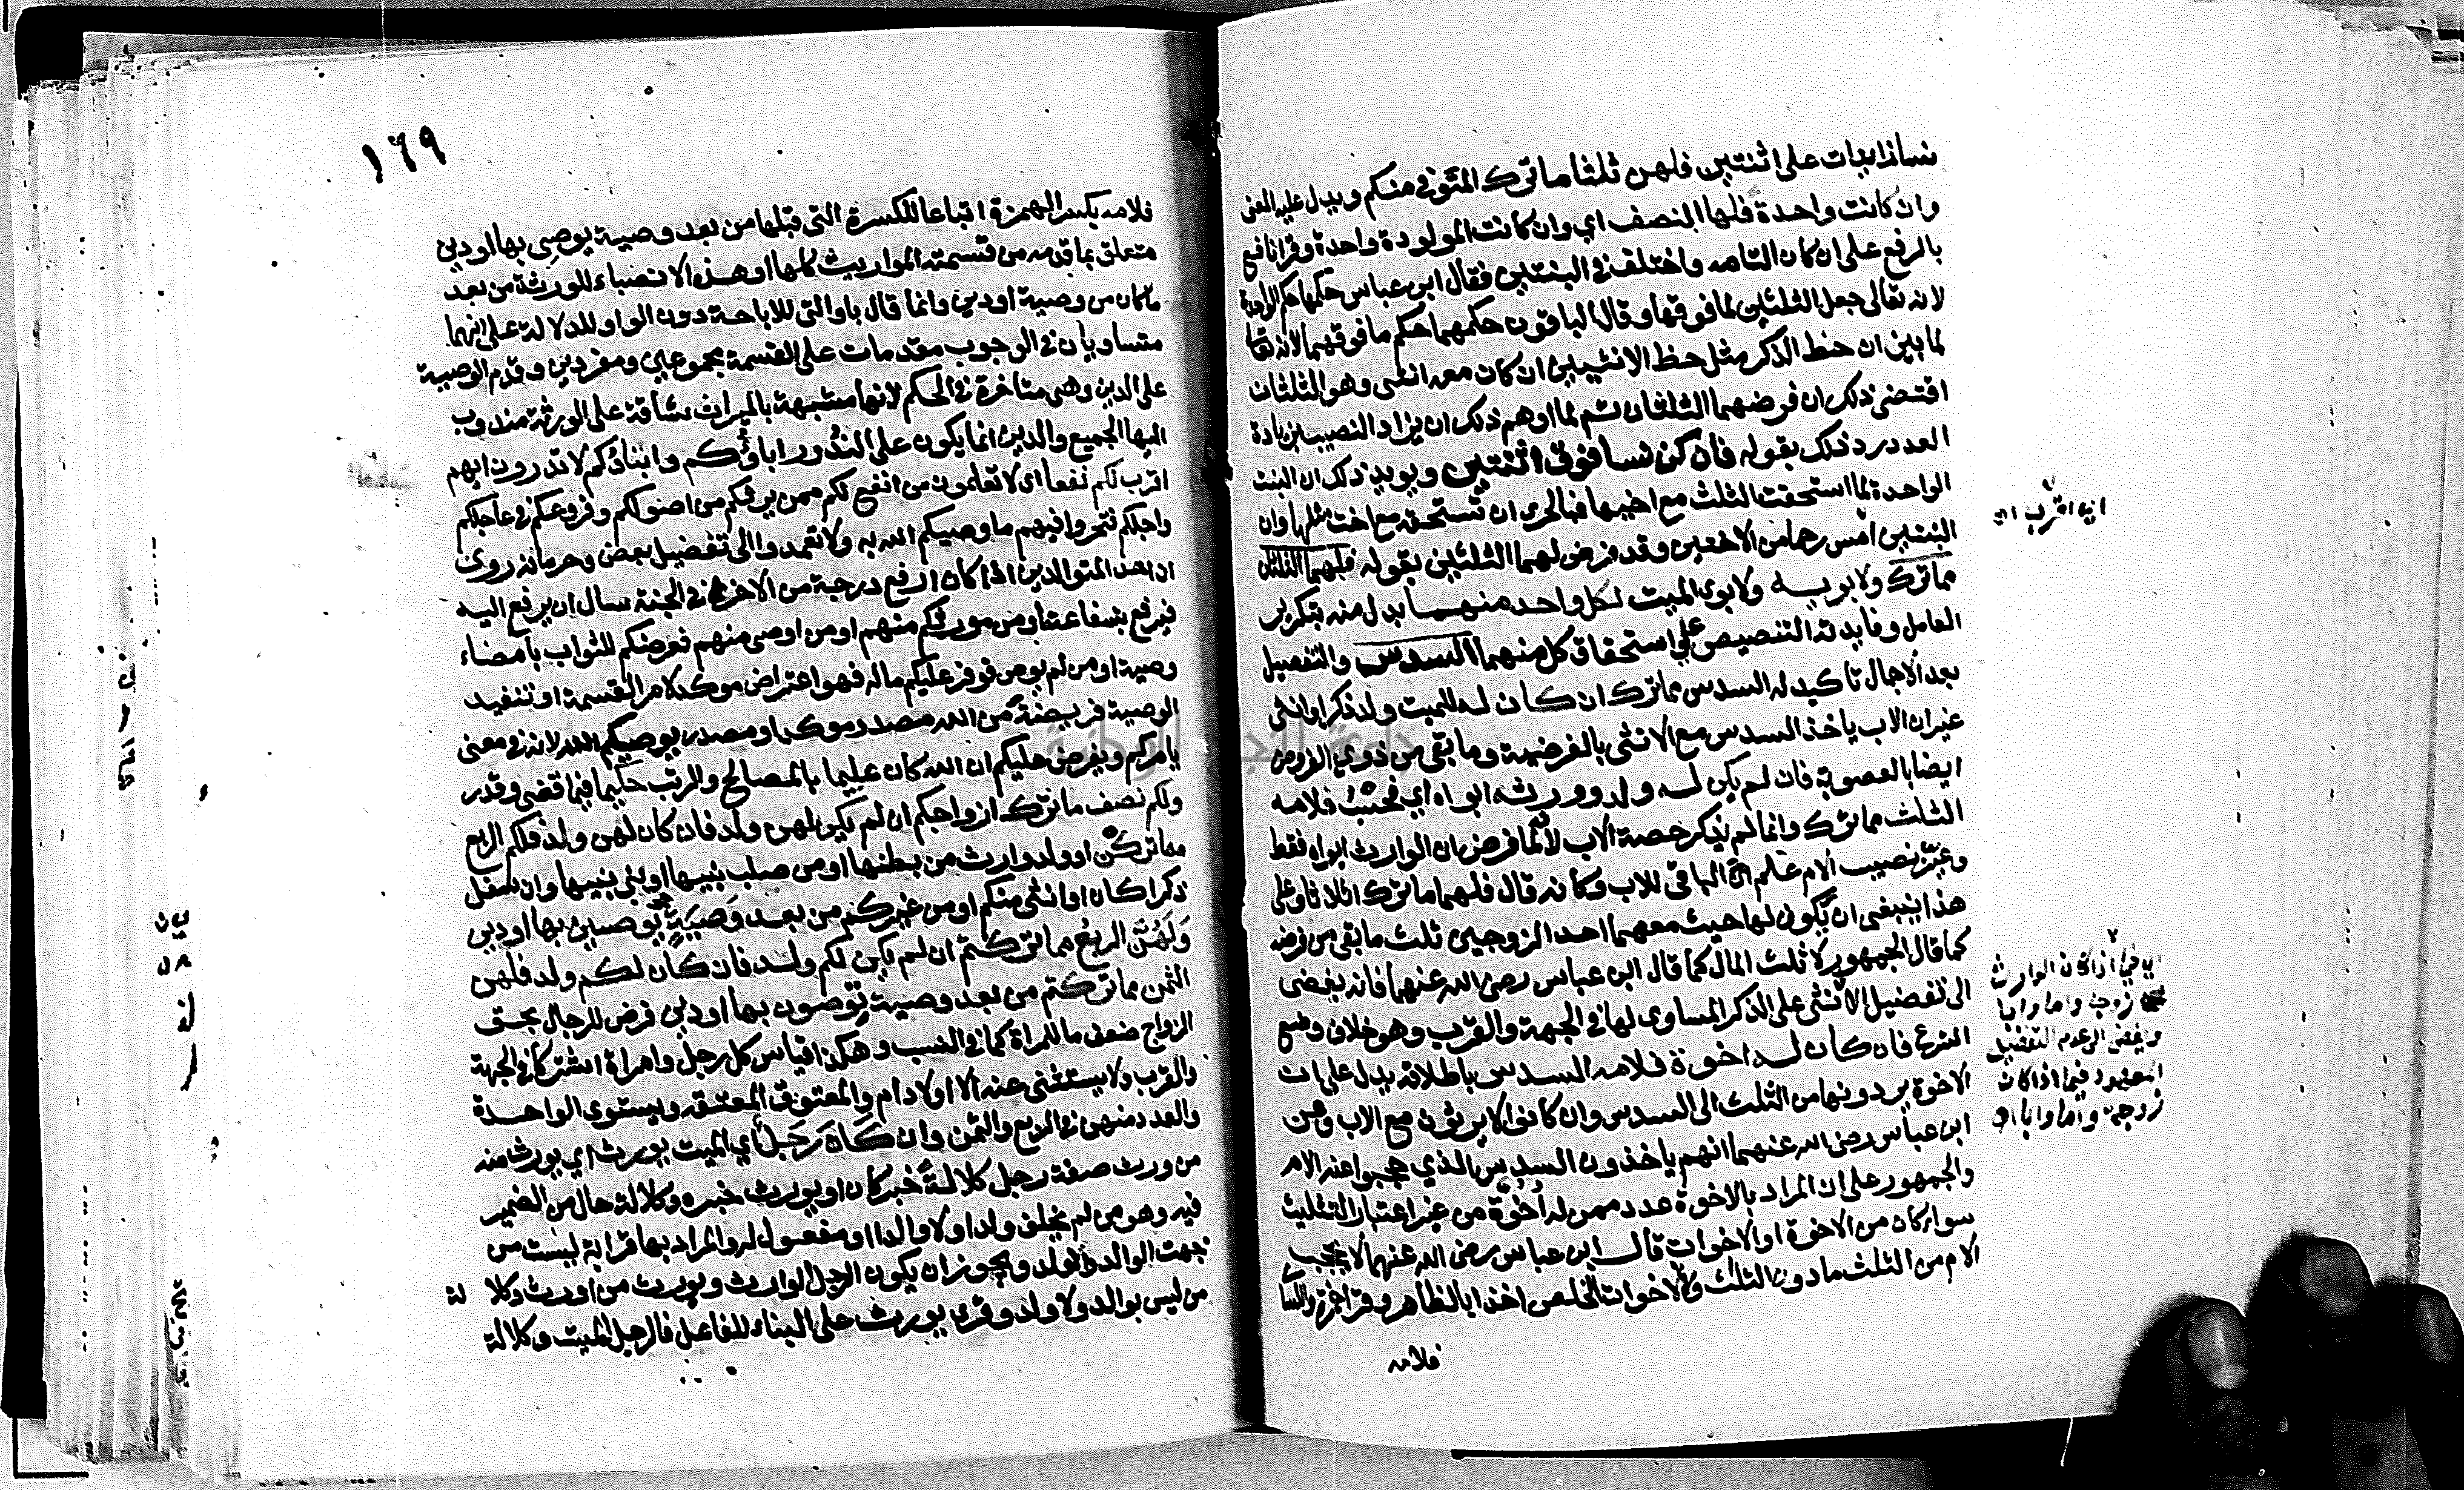 نسا زايدات على اثنتين فلهن ثلثا ما ترك المتوفى منكم ويدل عليه المعنى
وان كانت واحدة فلها النصف اي وان كانت المولودة واحدة وقرا نافع
بالرفع على ان كان التامه واختلف في البنتين فقال ابن عباس حكمهما حكم الواحدة
لانه تعالى جعل الثلثين لما فوقهما وقال الباقون حكمهما حكم ما فوقهما لانه تعالى
لما بين ان حظ الذكر مثل حظ الانثيين ان كان معه انثى وهو الثلثان
اقتضى ذلك ان فرضهما الثلثان ثم لما اوهم ذلك ان يزاد النصيب بزيادة
العدد رد ذلك بقوله فان كن نسا فوق اثنتين ويويد ذلك ان البنت
الواحدة لما استحقت الثلث مع اخيها فبالحرى ان تستحقه مع اخت مثلها وان
البنتين امس رحما من الاختين وقد فرض لهما الثلثين بقوله فلهما الثلثان
مما ترك ولابويه ولابوى الميت لكل واحد منهما بدل منه بتكرير
العامل وفايدته التنصيص على استحقاق كل منهما السدس والتفصيل
بعد الاجمال تاكيد له السدس مما ترك ان كان له للميت ولد ذكر او انثى
غير ان الاب ياخذ السدس مع الانثى بالفرضية وما بقي من ذوي الفروض
ايضا بالعصوبة فان لم يكن له ولد وورثه ابواه اي فحسب فلامه
الثلث مما ترك وانما لم يذكر حصة الاب لانه لما فرض ان الوارث ابواه فقط
وعين نصيب الام علم ان الباقي للاب وكانه قال فلهما ما ترك اثلاثا وعلى
هذا ينبغي ان يكون لها حيث معهما احد الزوجين ثلث ما بقي من فرضه
كما قال الجمهور لا ثلث المال كما قال ابن عباس رضى الله عنهما فانه يفضى
الى تفضيل الانثى على الذكر المساوى لها في الجهة والقرب وهو خلاف وضع
الشرع فان كان له اخوة فلامه السدس باطلاقه يدل على ان
الاخوة يردونها من الثلث الى السدس وان كانوا لا يرثون مع الاب وعن
ابن عباس رضى الله عنهما انهم ياخذون السدس الذي حجبوا عنه الام
والجمهور على ان المراد بالاخوة عدد ممن له اخوة من غير اعتبار التثليث
سواء كان من الاخوة او الاخوات قال ابن عباس رضى الله عنهما لا يحجب
الام من الثلث ما دون الثلث ولا الاخوات الخلص اخذا بالظاهر وقرا حمزة والكسا
فلامه
الباقي اذا كان الوارث
زوجة واما وابا
ويفضى الى عدم التفضيل
المعهود فيما اذا كان
زوجة واما وابا
١٦٩
فلامه بكسر الهمزة اتباعا للكسرة التي قبلها من بعد وصية يوصي بها او دين
متعلق بما قدمه من قسمة المواريث كلها او هذه الانصباء للورثة من بعد
ما كان من وصية او دين وانما قال باو التي للاباحة دون الواو للدلالة على انهما
متساويان في الوجوب مقدمات على القسمة مجموعين ومفردين وقدم الوصية
على الدين وهي متاخرة في الحكم لانها مشبهة بالميراث شاقة على الورثة مندوب
اليها الجميع والدين انما يكون على الندور اباؤكم وابناؤكم لا تدرون ايهم
اقرب لكم نفعا اى لا تعلمون من انفع لكم ممن يرثكم من اصولكم وفروعكم في عاجلكم
واجلكم فتحروا فيهم ما وصيكم الله به ولا تعمدوا الى تفضيل بعض وحرمانه روى
ان احد المتوالدين اذا كان ارفع درجة من الاخر في الجنة سال ان يرفع اليه
فيرفع بشفاعته او من مورثكم منهم او من اوصى منهم فعرضكم للثواب بامضاء
وصية او من لم يوص فوفر عليكم ماله فهو اعتراض موكد لامر القسمة او تنفيد
الوصية فريضة من الله مصدر موكد او مصدر يوصيكم الله لانه في معنى
يامركم ويفرض عليكم ان الله كان عليما بالمصالح والرتب حكيما فيما قضى وقدر
ولكم نصف ما ترك ازواجكم ان لم يكن لهن ولد فان كان لهن ولد فلكم الربع
مما تركن او ولد وارث من بطنها او من صلب بنيها او بني بنيها وان سفل
ذكرا كان او انثى منكم او من غيركم من بعد وصية يوصين بها او دين
ولهن الربع مما تركتم ان لم يكن لكم ولد فان كان لكم ولد فلهن
الثمن مما تركتم من بعد وصية توصون بها او دين فرض للرجال بحق
الزواج ضعف ما للمراة كما في النسب وهكذا قياس كل رجل وامراة اشتركا في الجهة
والقرب ولا يستثنى عنه الا اولاد ام والمعتق والمعتقه ويستوى الواحدة
والعدد منهن في الربع والثمن وان كان رجل اي الميت يورث اي يورث منه
من ورث صفة رجل كلالة خبر كان او يورث خبره وكلالة حال من الضمير
فيه وهو من لم يخلف ولدا ولا والدا او مفعول له والمراد بها قرابة ليست من
جهت الوالد والولد ويجوز ان يكون الرجل الوارث ويورث من اورث وكلالة
من ليس بوالد ولا ولد وقرى يورث على البناء للفاعل فالرجل الميت وكلالة